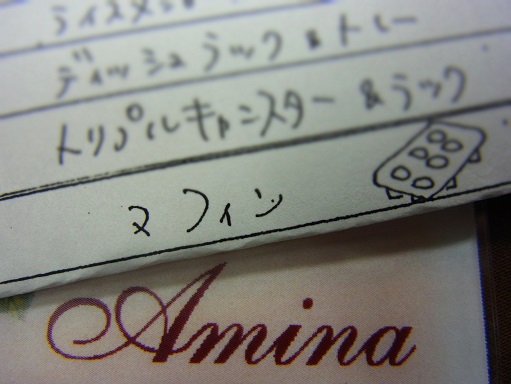 ディッシュ ラック & トレー
トリプルキャニスター & ラック
マフィン
Amina